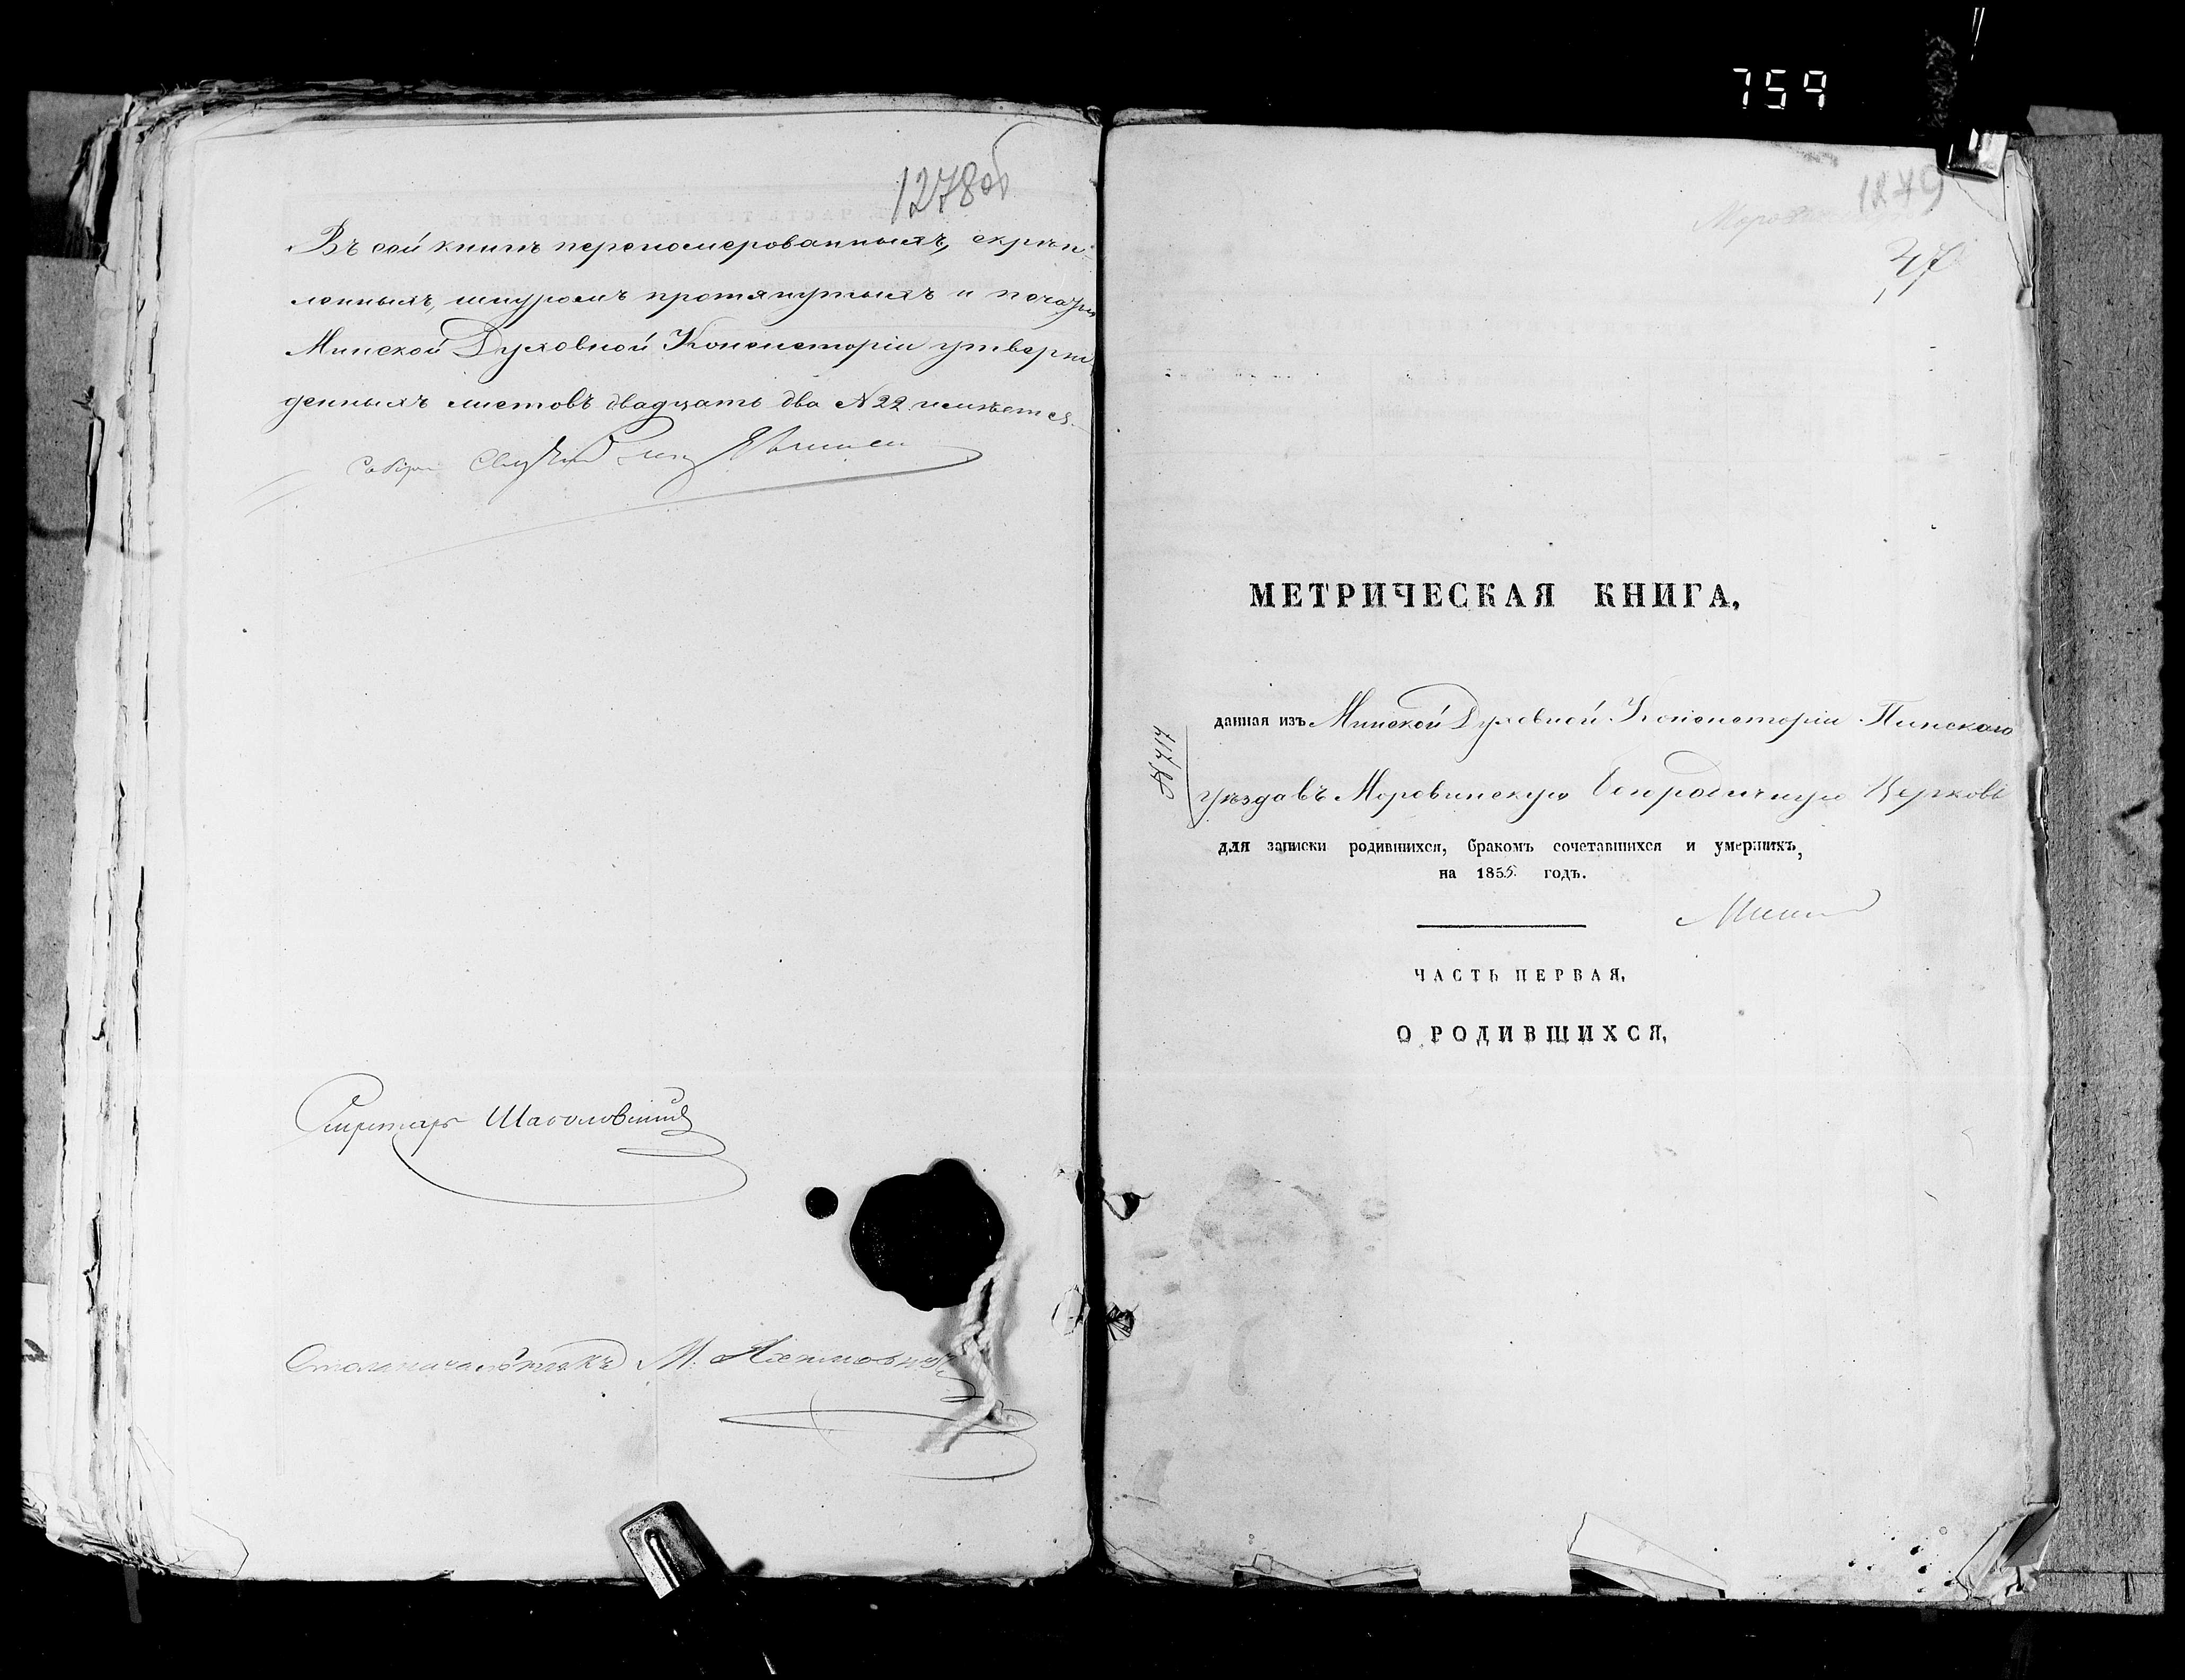 759
1278об
Въ сей книгѣ перенумерованныхъ, скрѣп-
ленныхъ, шнуромъ протянутыхъ и печатью
Минской Духовной Консисторіи утверж-
денныхъ листовъ двадцать два № 22 имѣется.
Секретарь
Столоначальникъ М.
1279
47
МЕТРИЧЕСКАЯ КНИГА,
данная изъ Минской Духовной Консисторіи Пинскаго
уѣзда въ Моровинскую Богородичную Церковь
№ 717
для записки родившихся, бракомъ сочетавшихся и умершихъ,
на 1855 годъ.
ЧАСТЬ ПЕРВАЯ,
О РОДИВШИХСЯ,